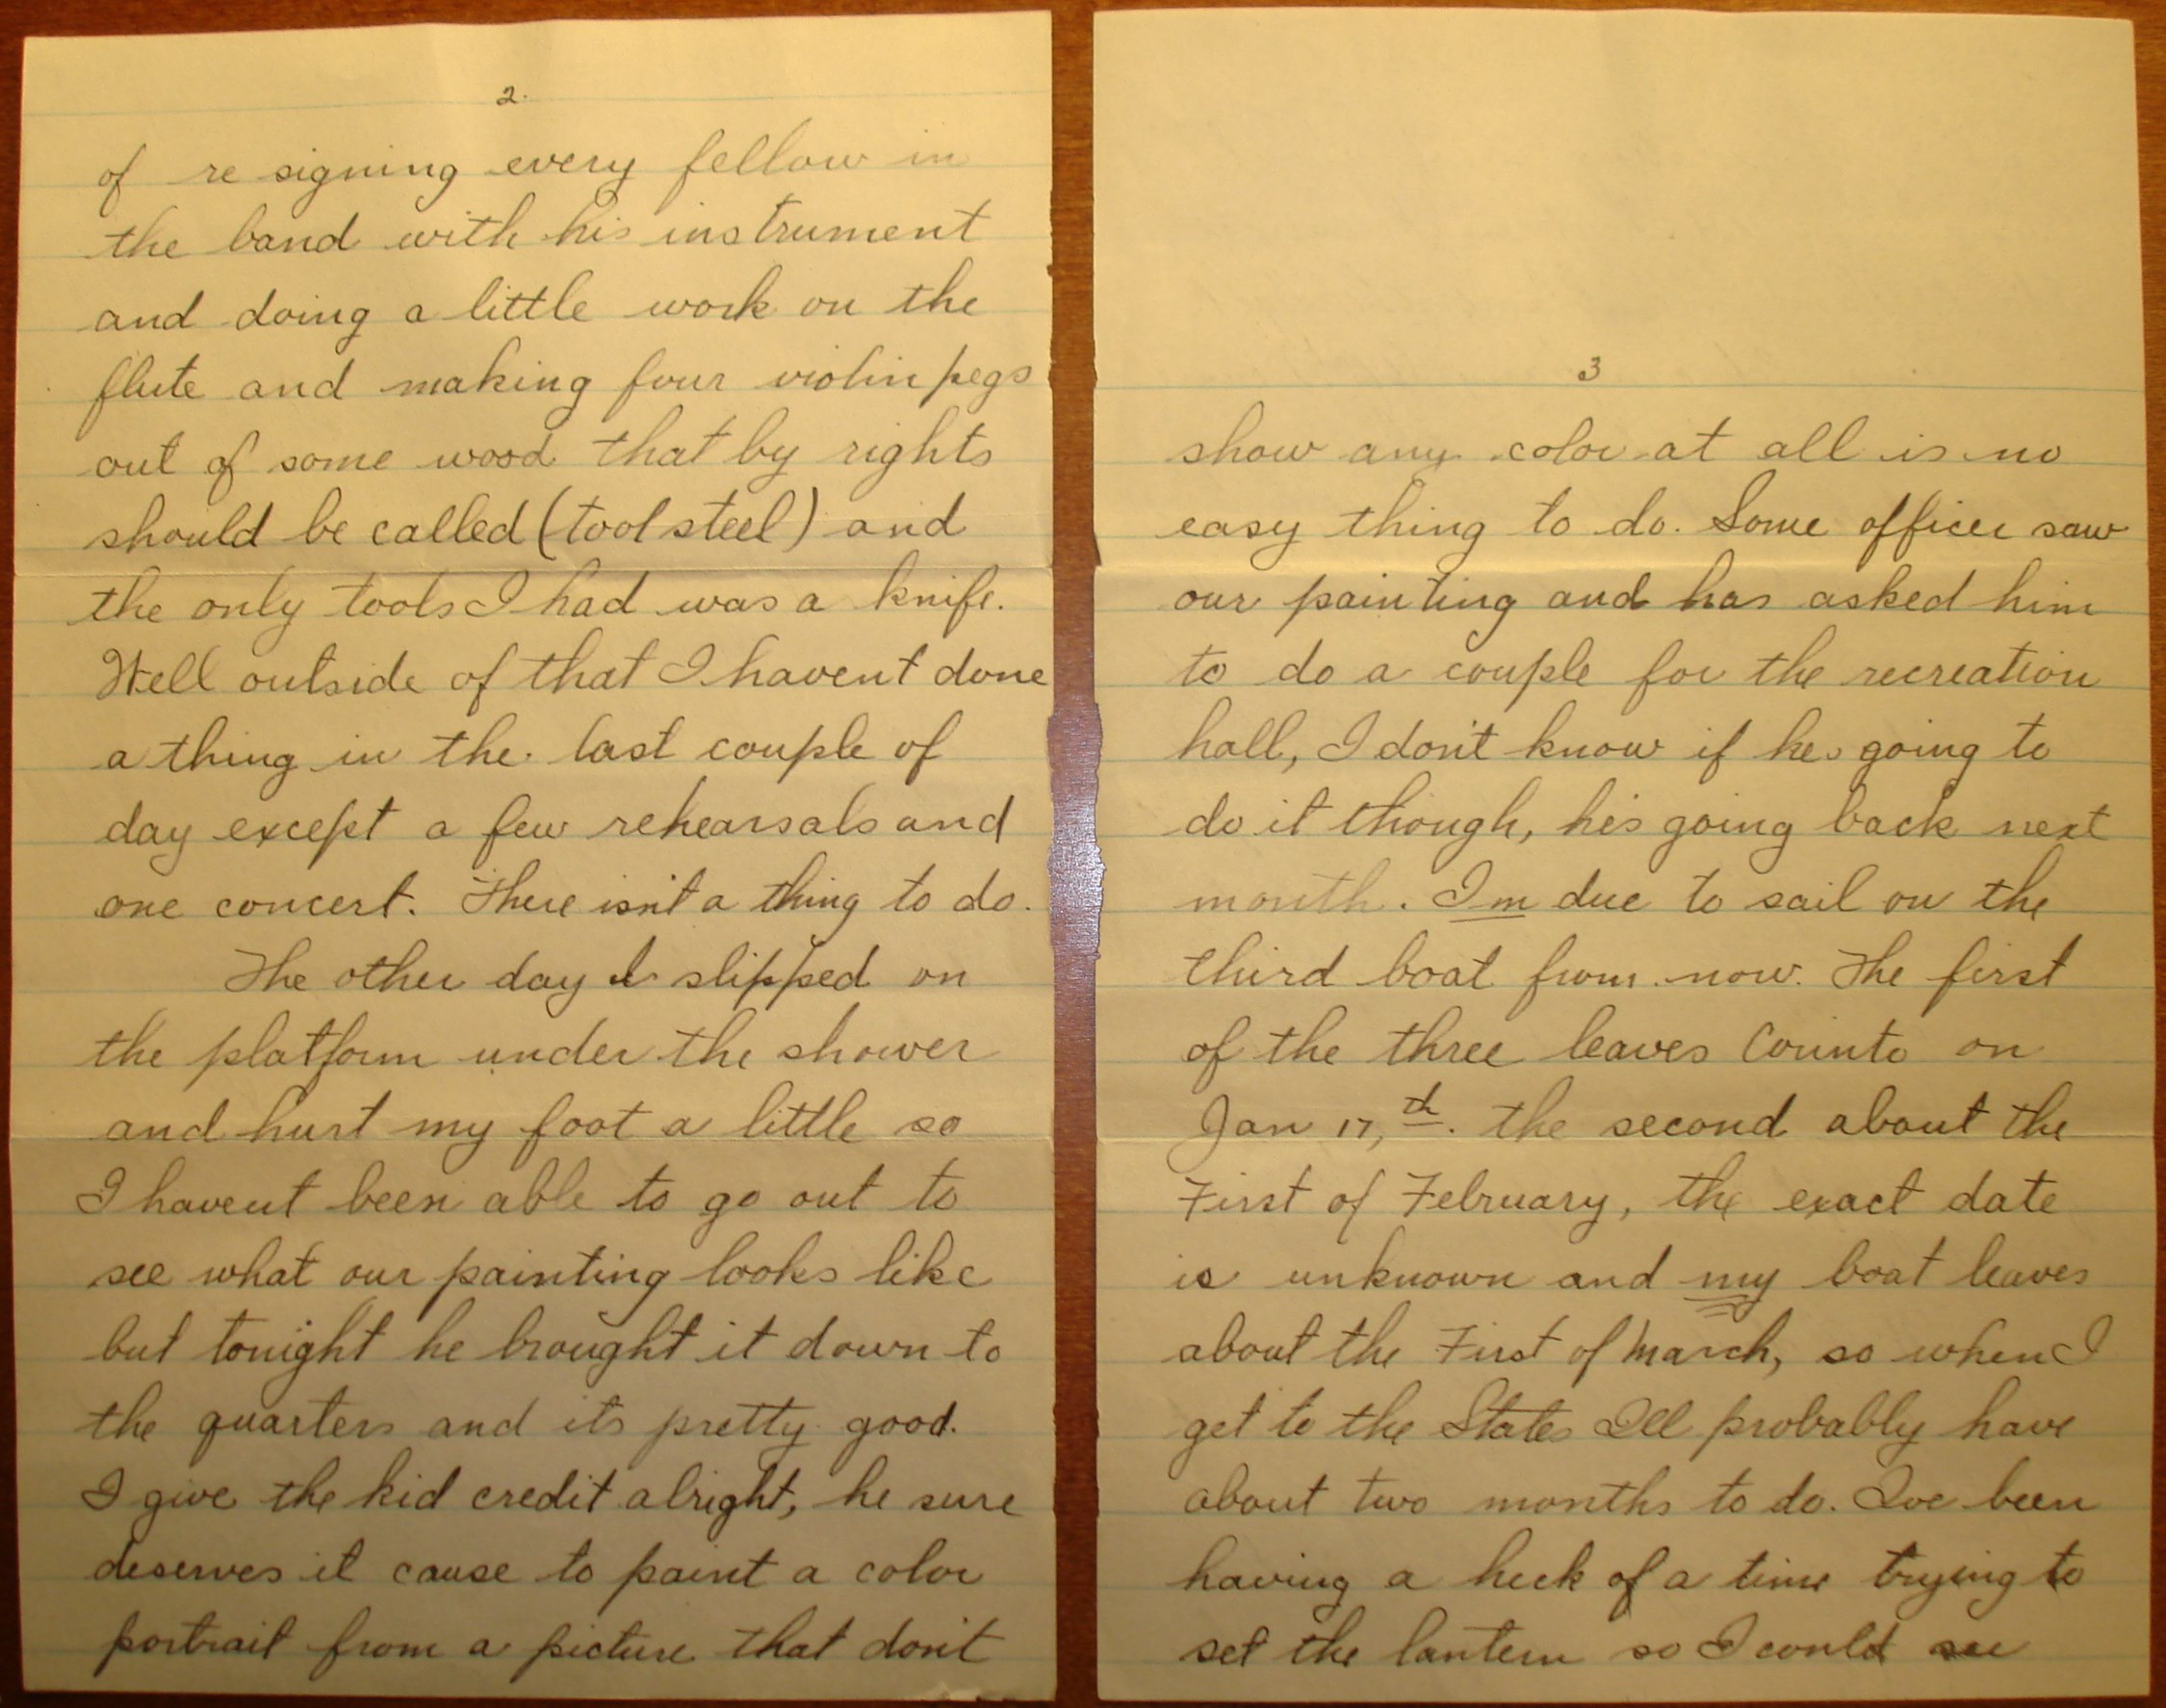 2.
of re signing every fellow in
the band with his instrument
and doing a little work on the
flute and making four violin pegs
out of some wood that by rights
should be called (tool steel) and
the only tools I had was a knife.
Well outside of that I havent done
a thing in the last couple of
day except a few rehearsals and
one concert. There isn't a thing to do.
The other day I slipped on
the platform under the shower
and hurt my foot a little so
I havent been able to go out to
see what our painting looks like
but tonight he brought it down to
the quarters and its pretty good.
I give the kid credit alright, he sure
deserves it cause to paint a color
portrait from a picture that don't
3
show any color at all is no
easy thing to do. Some officer saw
our painting and has asked him
to do a couple for the recreation
hall, I don't know if hes going to
do it though, he's going back next
month. Im due to sail on the
third boat from now. The first
of the three leaves Corinto on
Jan 17,th. the second about the
First of February, the exact date
is unknown and my boat leaves
about the First of March, so when I
get to the States Ill probably have
about two months to do. Ive been
having a heck of a time trying to
set the lantern so I could see